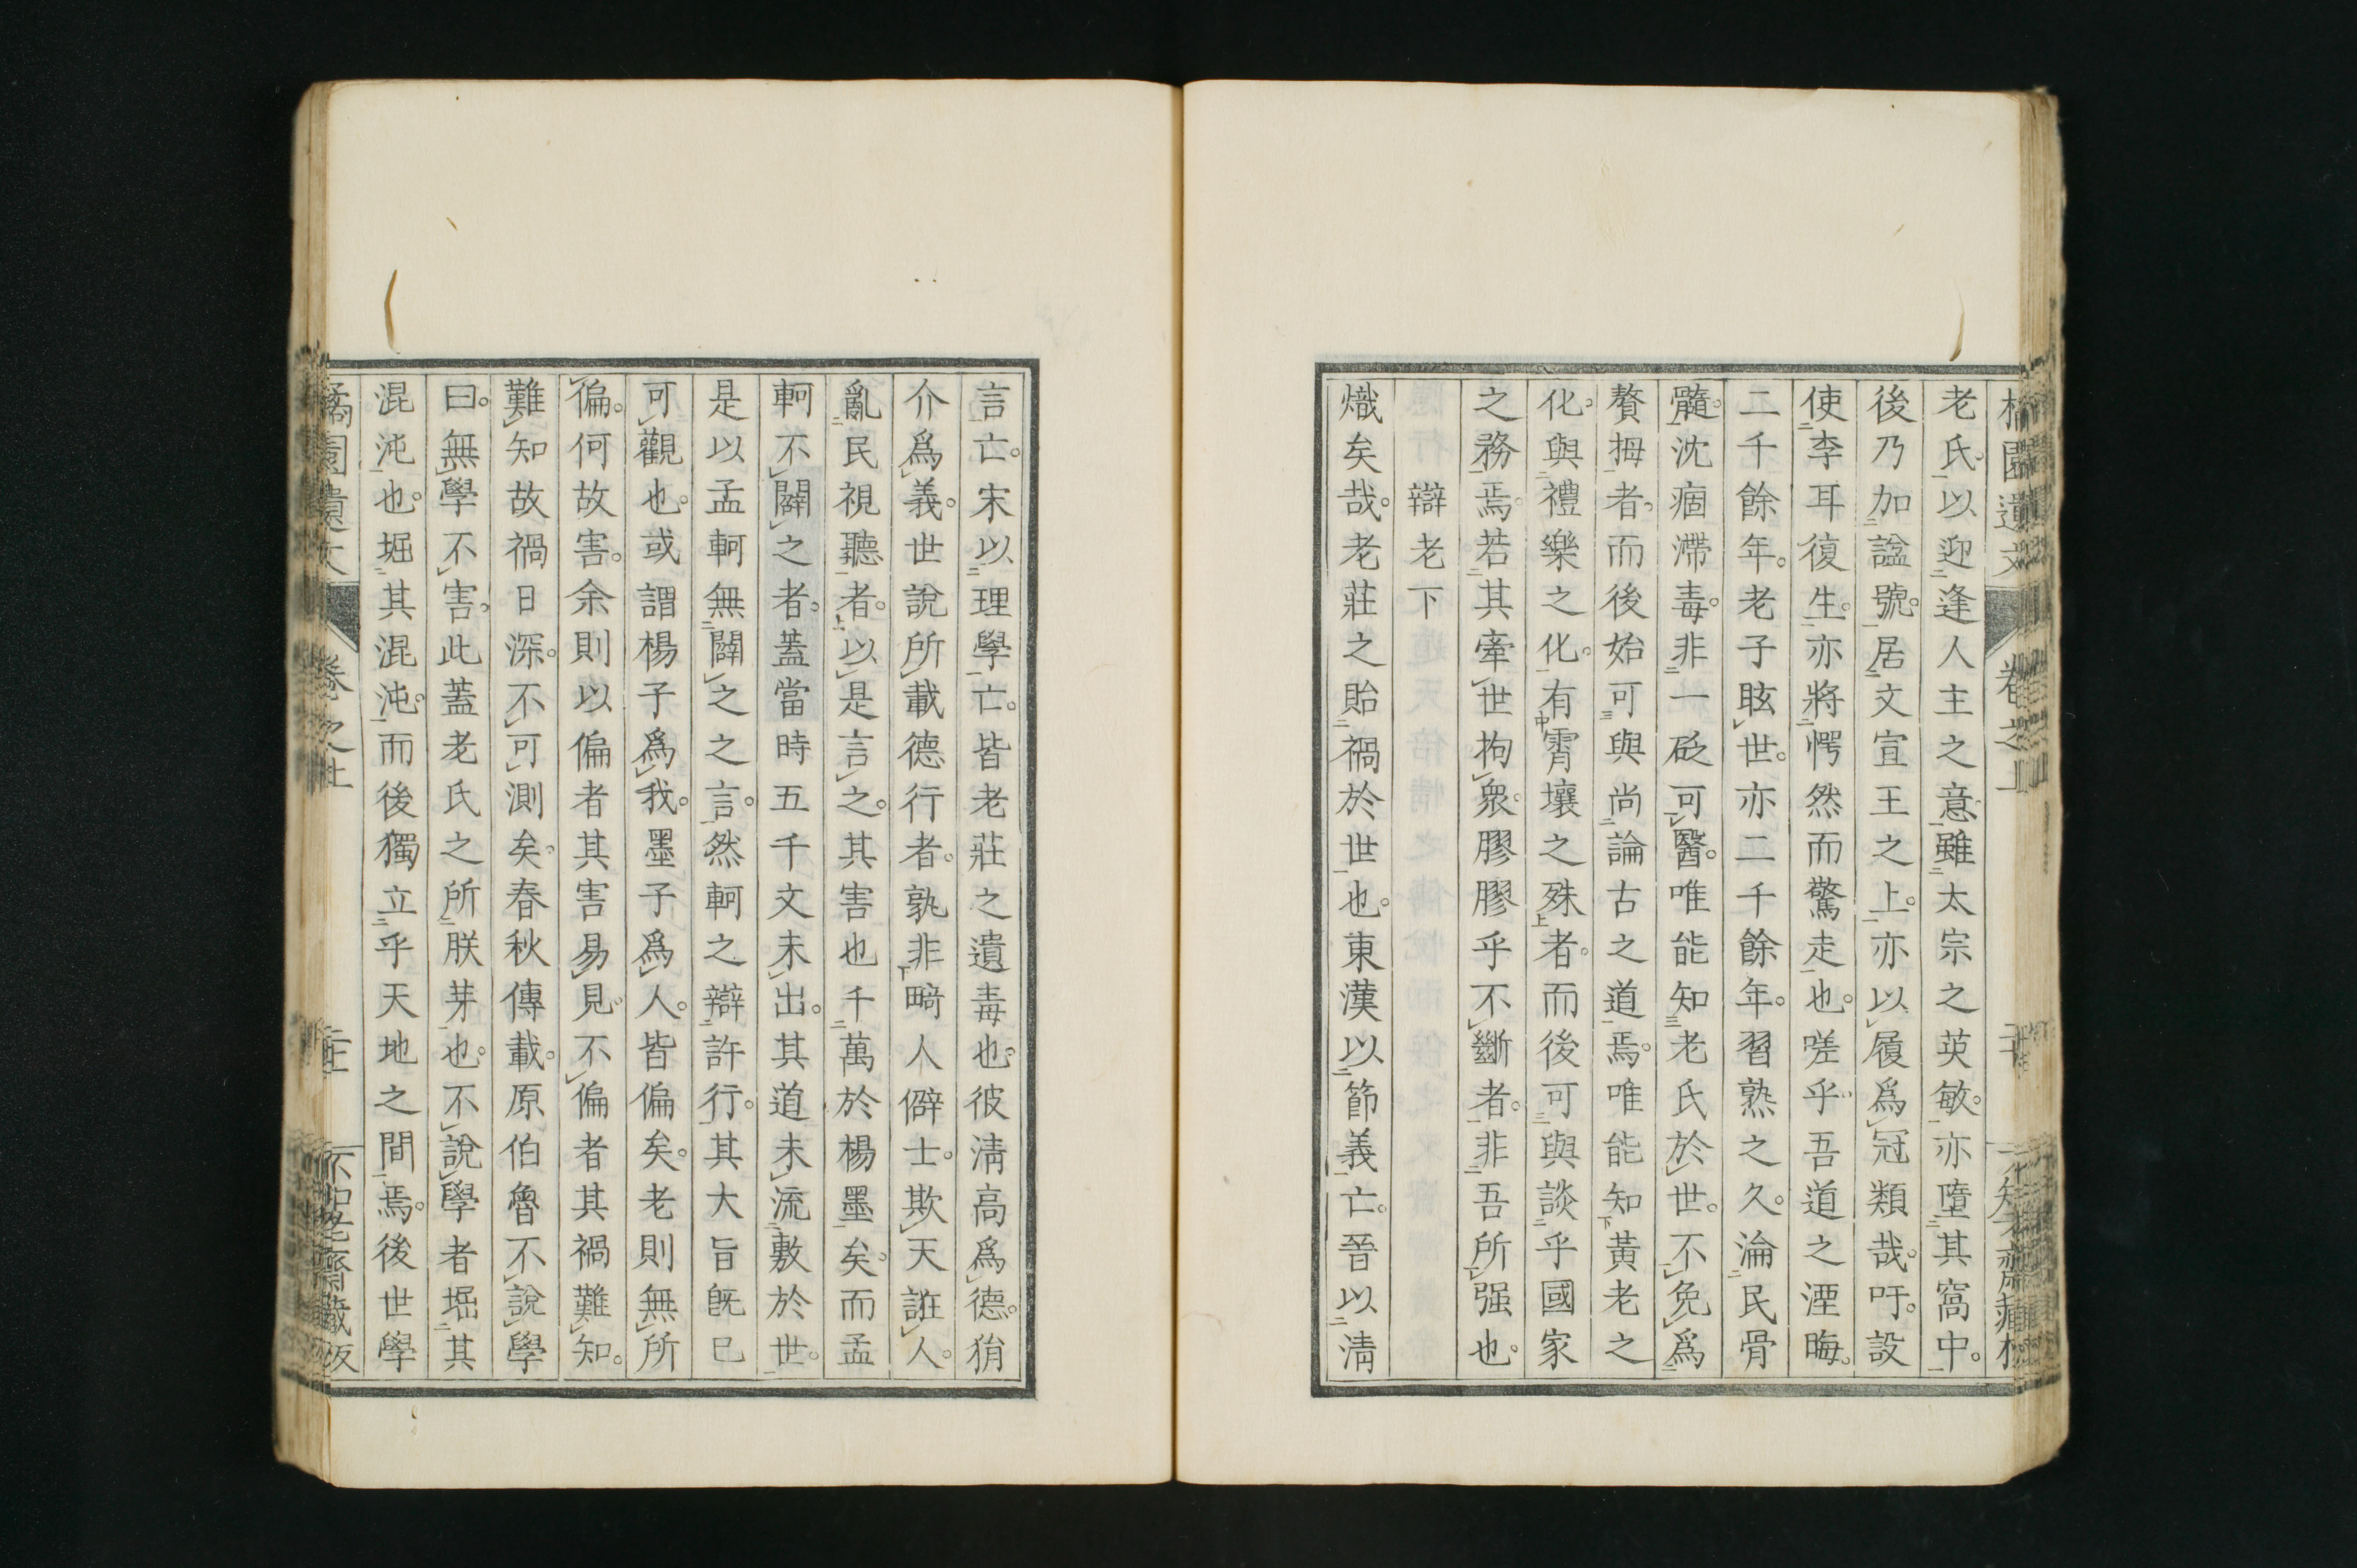 老氏以迎逢人主之意雖太宗之英敏。亦墮其窩中。
後乃加諡號。居文宣王之上。亦以履爲冠類哉。吁。設
使李耳復生。亦將愕然而驚走也。嗟乎吾道之湮晦。
二千餘年。老子眩世。亦二千餘年。習熟之久。淪民骨
髓。沈痼滯毒。非一砭可醫。唯能知老氏於世。不免爲
贅拇者。而後始可與尚論古之道焉。唯能知黃老之
化。與禮樂之化。有霄壤之殊者。而後可與談乎國家
之務焉。若其牽世拘衆。膠膠乎不斷者。非吾所强也。
辯老下
熾矣哉。老莊之貽禍於世也。東漢以節義亡。晉以清
言亡。宋以理學亡。皆老莊之遺毒也。彼淸高爲德。狷
介爲義。世說所載德行者。孰非畸人僻士。欺天誑人。
亂民視聽者。以是言之。其害也千萬於楊墨矣。而孟
軻不闢之者。蓋當時五千文未出。其道未流敷於世。
是以孟軻無闢之之言。然軻之辯許行。其大旨旣已
可觀也。或謂楊子爲我。墨子爲人。皆偏矣。老則無所
偏。何故害。余則以偏者其害易見。不偏者其禍難知。
難知故禍日深。不可測矣。春秋傳載。原伯魯不說學
曰。無學不害。此蓋老氏之所朕芽也。不說學者堀其
混沌也。堀其混沌。而後獨立乎天地之間焉。後世學